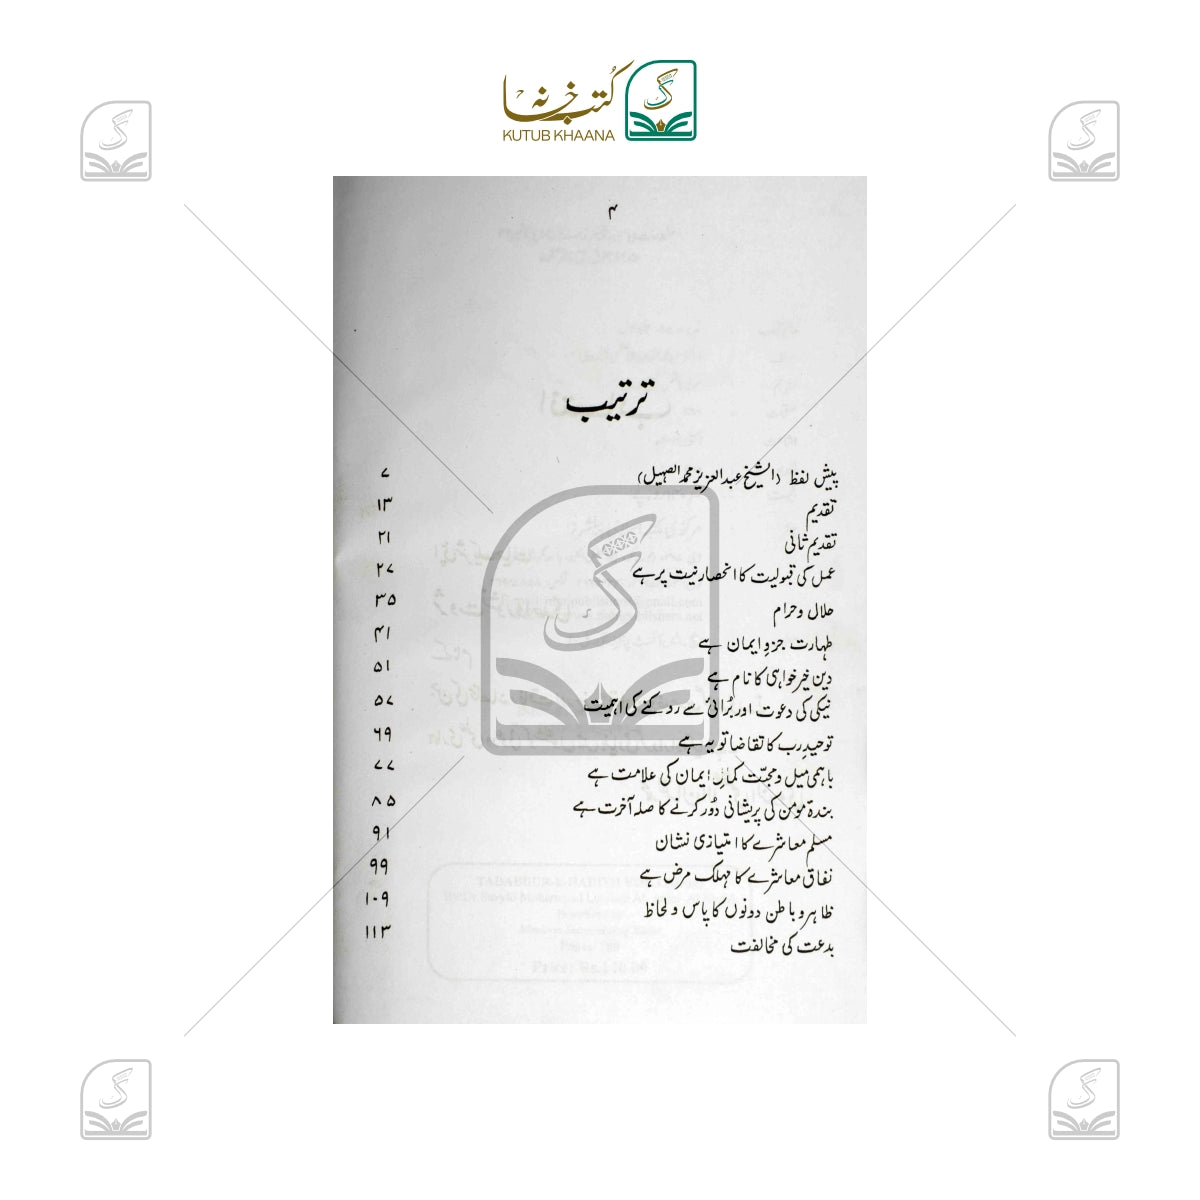 کتب خانہ
KUTUB KHAANA
۴
ترتیب
پیش لفظ (الشیخ عبدالعزیز محمد الصہیل) ۷
تقدیم ۱۳
تقدیم ثانی ۲۱
عمل کی قبولیت کا انحصار نیت پر ہے ۲۷
حلال و حرام ۳۵
طہارت جزوِ ایمان ہے ۴۱
دین خیر خواہی کا نام ہے ۵۱
نیکی کی دعوت اور بُرائی سے روکنے کی اہمیت ۵۷
توحیدِ رب کا تقاضا تو یہ ہے ۶۹
باہمی میل و محبّت کمالِ ایمان کی علامت ہے ۷۷
بندۂ مومن کی پریشانی دُور کرنے کا صلہ آخرت ہے ۸۵
مسلم معاشرے کا امتیازی نشان ۹۱
نفاق معاشرے کا مہلک مرض ہے ۹۹
ظاہر و باطن دونوں کا پاس و لحاظ ۱۰۹
بدعت کی مخالفت ۱۱۳